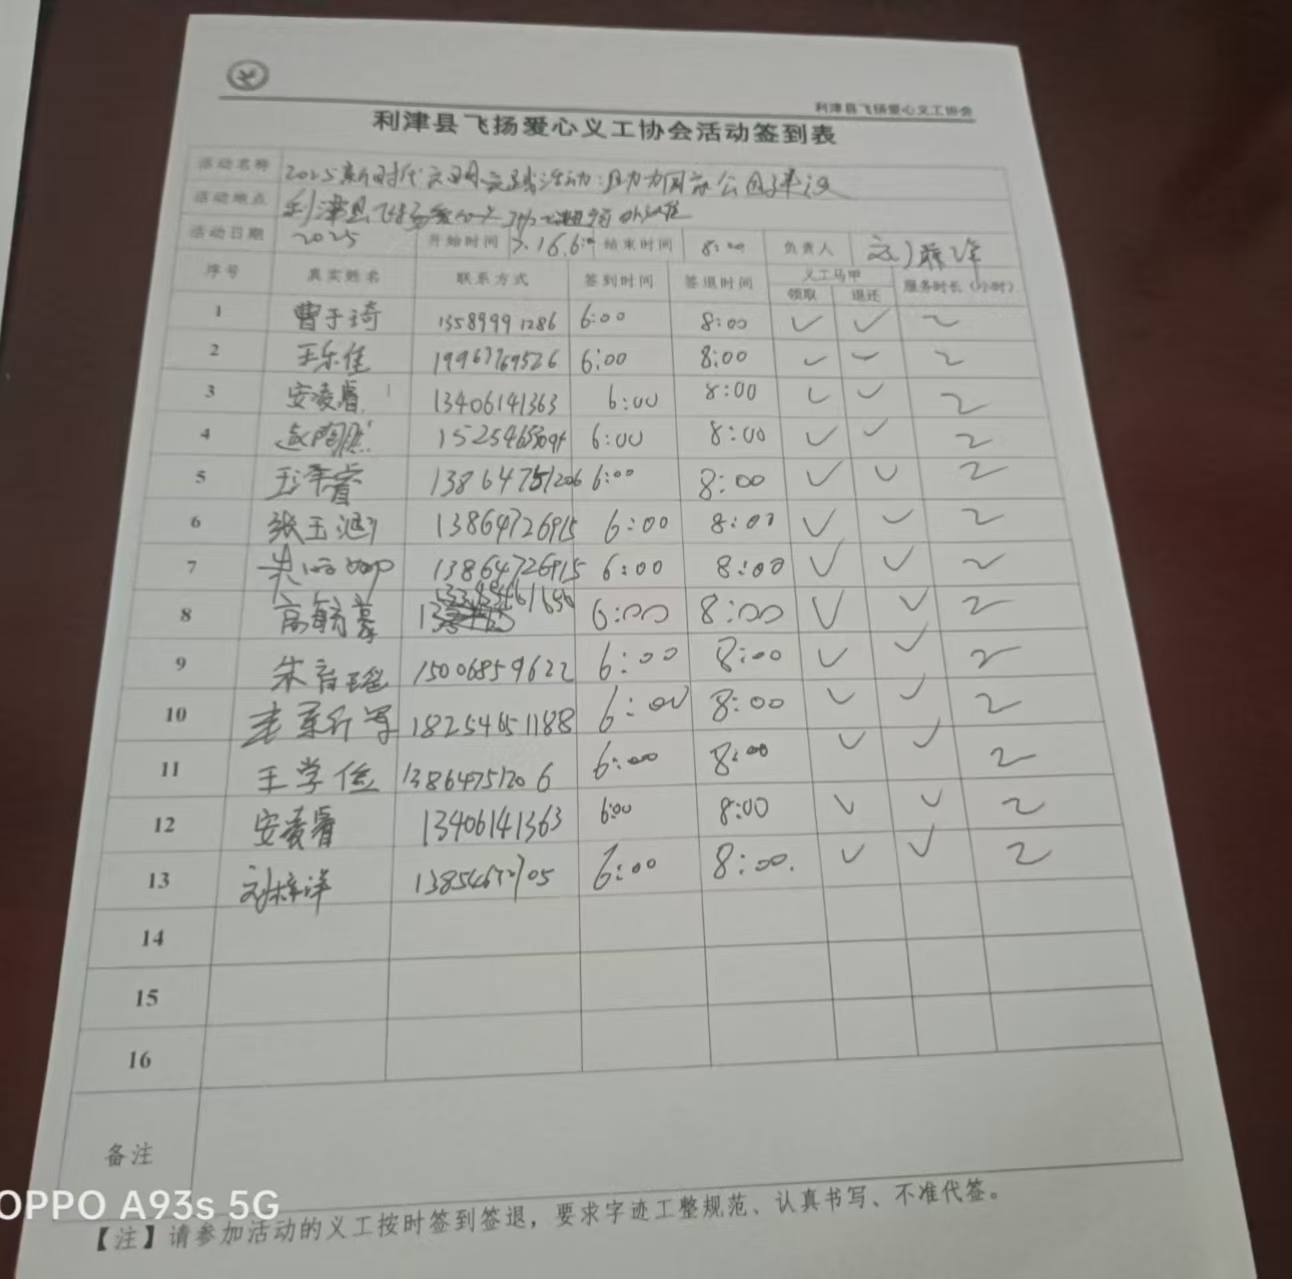 利津县飞扬爱心义工协会
利津县飞扬爱心义工协会活动签到表
活动名称 2025新时代文明实践活动:助力同心公园建设
活动地点 利津县飞扬爱心义工协会
活动日期 2025 开始时间 3.16.6:00 结束时间 8:00 负责人
序号 真实姓名 联系方式 签到时间 签退时间 义工马甲 服务时长(小时)
领取 退还
1 曹于琦 13589991286 6:00 8:00 ✓ ✓ 2
2 王乐佳 19967769526 6:00 8:00 ✓ ✓ 2
3 安凌睿 13406141363 6:00 8:00 ✓ ✓ 2
4 6:00 8:00 ✓ ✓ 2
5 王泽睿 13864751206 6:00 8:00 ✓ ✓ 2
6 张玉涵 13864726915 6:00 8:00 ✓ ✓ 2
7 13864726915 6:00 8:00 ✓ ✓ 2
8 高毓蔓 6:00 8:00 ✓ ✓ 2
9 朱育瑶 15006859622 6:00 8:00 ✓ ✓ 2
10 18254651188 6:00 8:00 ✓ ✓ 2
11 王学信 13864751206 6:00 8:00 ✓ ✓ 2
12 安凌睿 13406141363 6:00 8:00 ✓ ✓ 2
13 刘梓洋 6:00 8:00. ✓ ✓ 2
14
15
16
备注
OPPO A93s 5G
【注】请参加活动的义工按时签到签退，要求字迹工整规范、认真书写、不准代签。